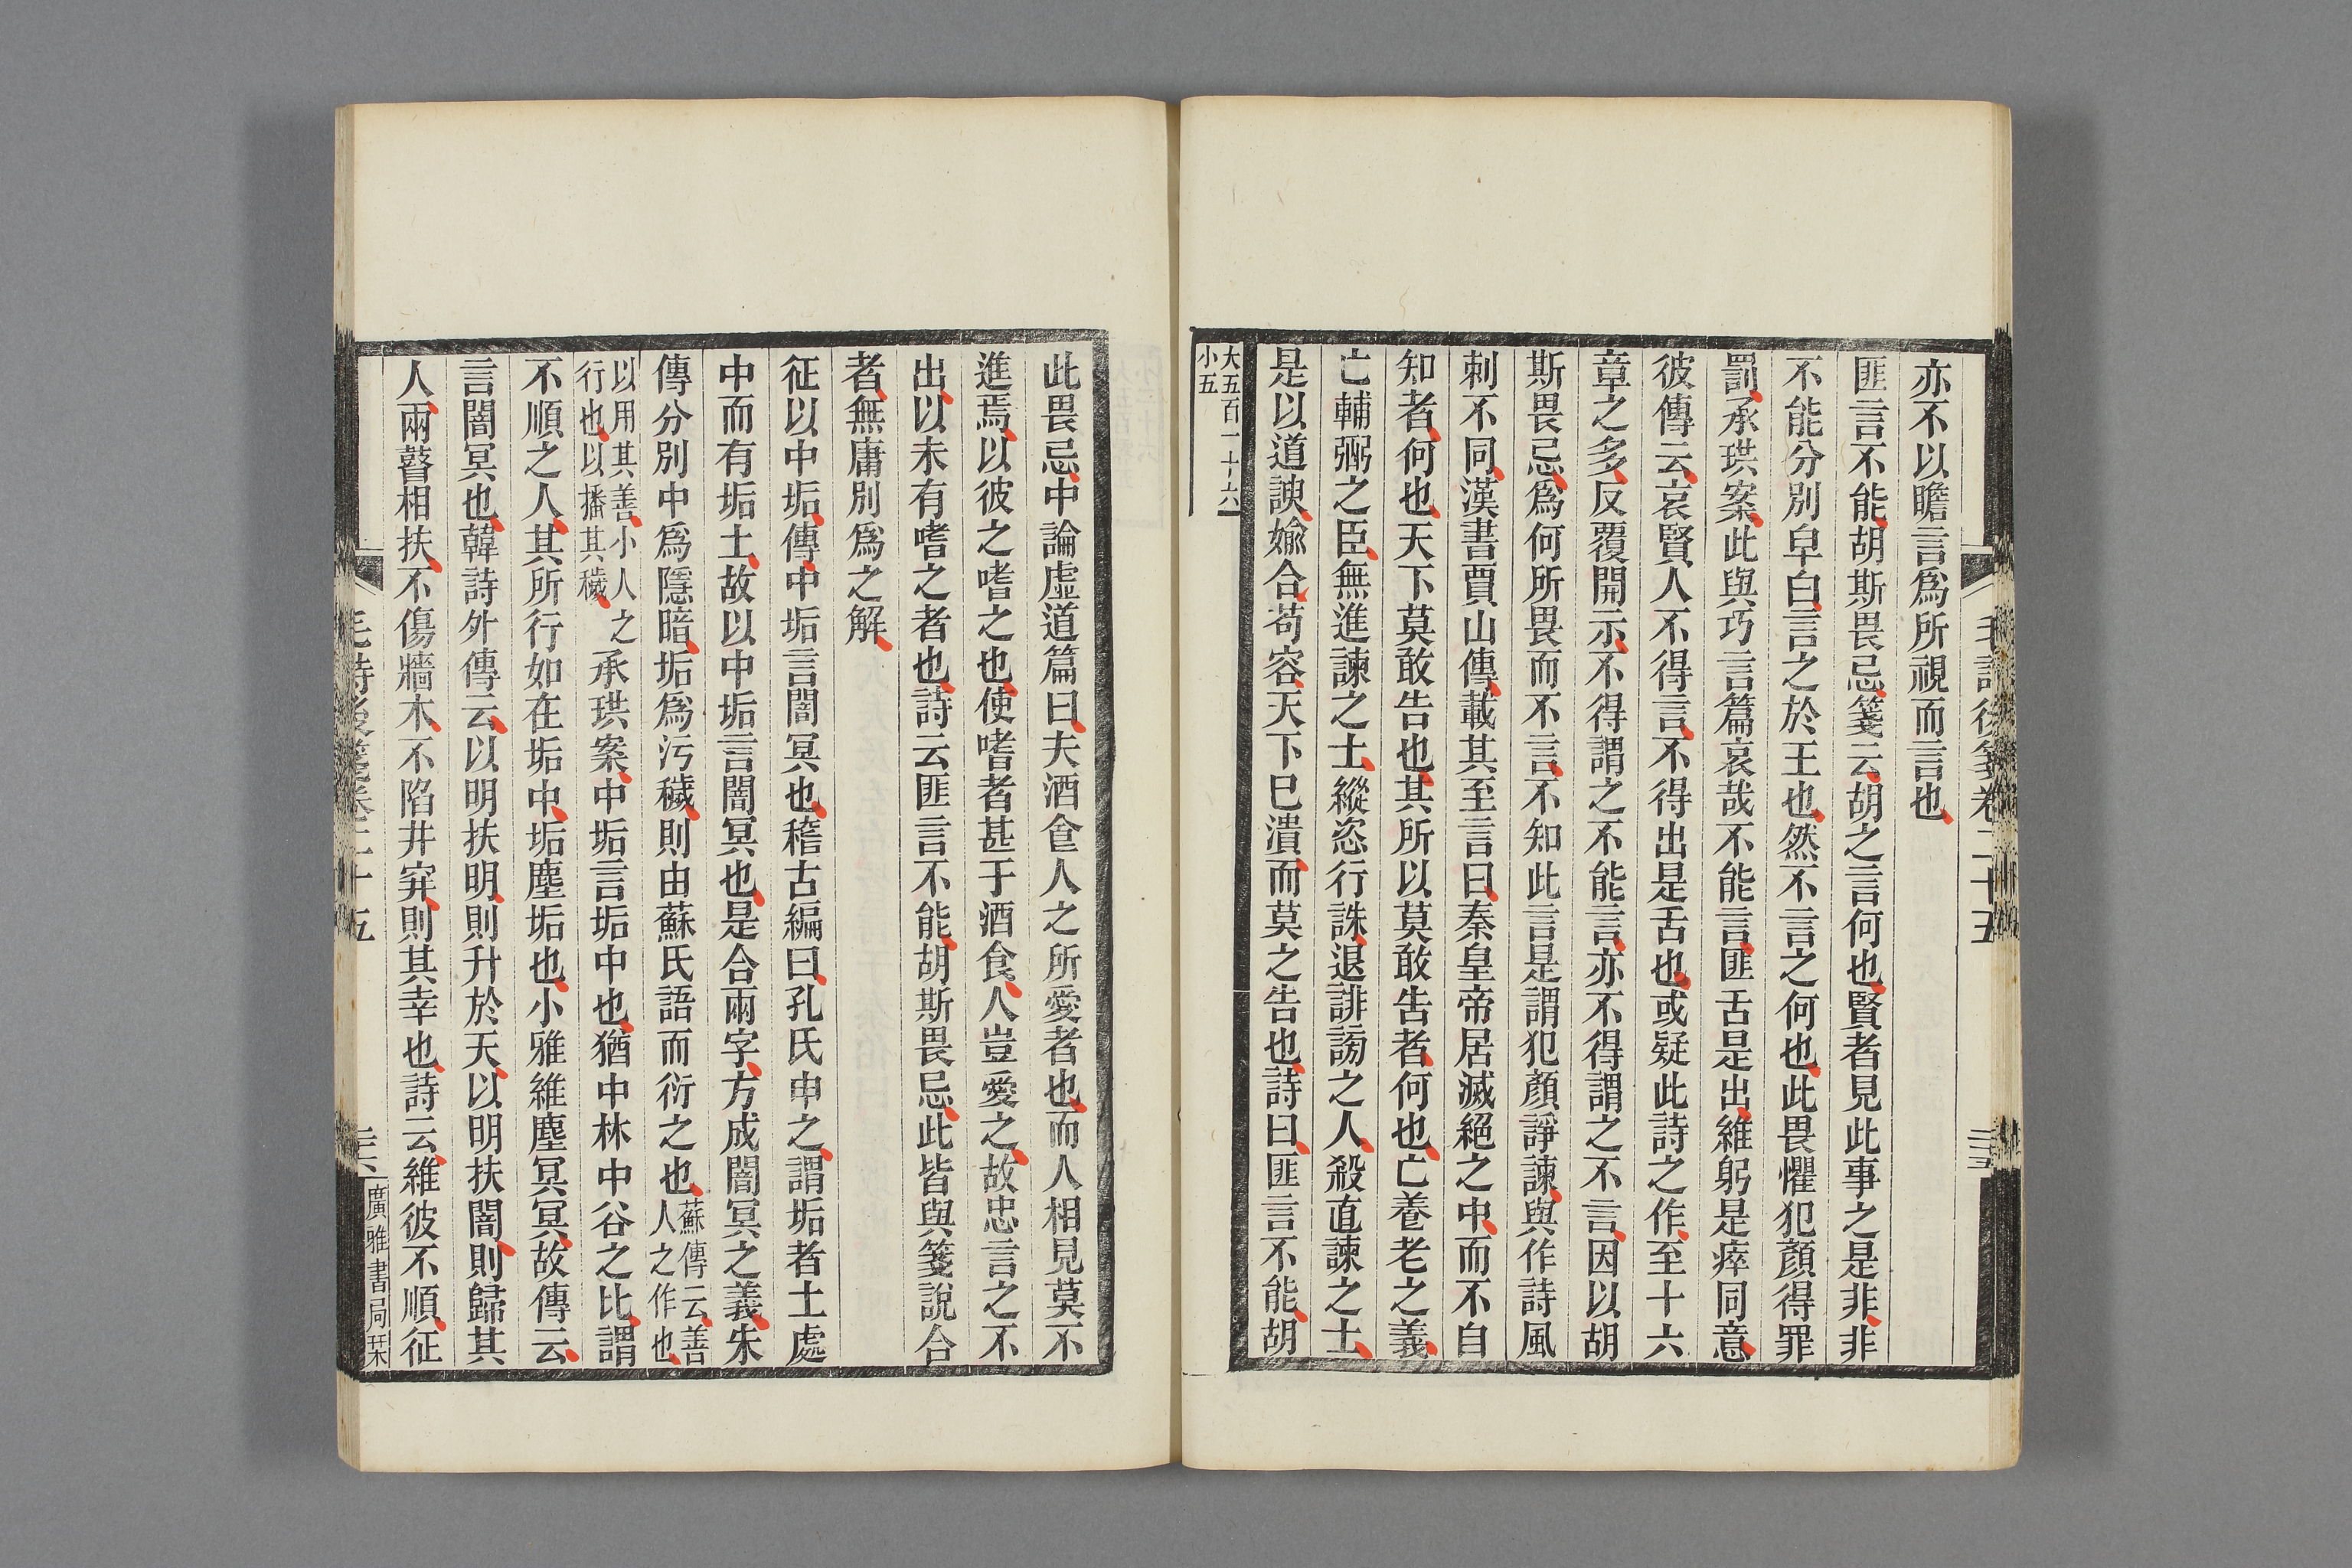 亦不以瞻言爲所視而言也
匪言不能胡斯畏忌箋云胡之言何也賢者見此事之是非非
不能分別皁白言之於王也然不言之何也此畏懼犯顏得罪
罰承珙案此與巧言篇哀哉不能言匪舌是出維躬是瘁同意
彼傳云哀賢人不得言不得出是舌也或疑此詩之作至十六
章之多反覆開示不得謂之不能言亦不得謂之不言因以胡
斯畏忌爲何所畏而不言不知此言是謂犯顏諍諫與作詩風
刺不同漢書賈山傳載其至言曰秦皇帝居滅絕之中而不自
知者何也天下莫敢告也其所以莫敢告者何也亡養老之義
亡輔弼之臣無進諫之士縱恣行誅退誹謗之人殺直諫之士
是以道諛媮合苟容天下已潰而莫之告也詩曰匪言不能胡
大五百一十六
小五
毛詩後箋卷二十五
三五
此畏忌中論虛道篇曰夫酒食人之所愛者也而人相見莫不
進焉以彼之嗜之也使嗜者甚于酒食人豈愛之故忠言之不
出以未有嗜之者也詩云匪言不能胡斯畏忌此皆與箋說合
者無庸別爲之解
征以中垢傳中垢言闇冥也稽古編曰孔氏申之謂垢者土處
中而有垢土故以中垢言闇冥也是合兩字方成闇冥之義朱
傳分別中爲隱暗垢爲污穢則由蘇氏語而衍之也蘇傳云善
人之作也
以用其善小人之
行也以播其穢承珙案中垢言垢中也猶中林中谷之比謂
不順之人其所行如在垢中垢塵垢也小雅維塵冥冥故傳云
言闇冥也韓詩外傳云以明扶明則升於天以明扶闇則歸其
人兩瞽相扶不傷牆木不陷井穽則其幸也詩云維彼不順征
毛詩後箋卷二十五
三六
廣雅書局栞